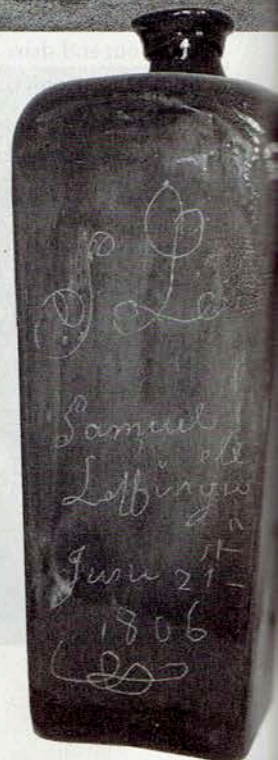 S L
Samuel
Leffingwell
June 21st
1806